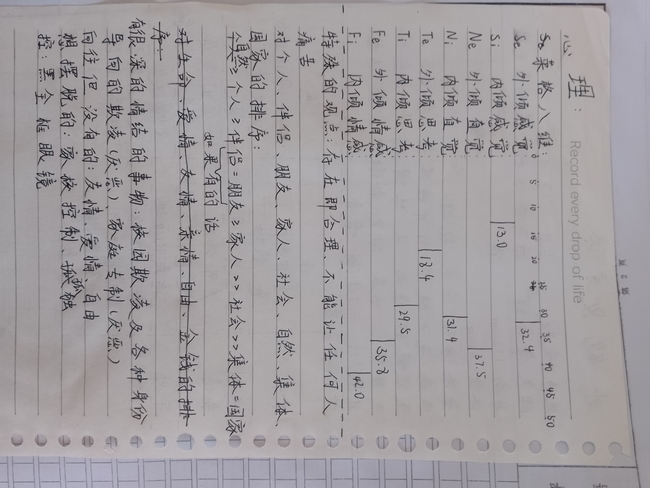 心理：
Record every drop of life
荣格八维：0 5 10 15 20 25 30 35 40 45 50
Se 外倾感觉 32.4
Si 内倾感觉 13.0
Ne 外倾直觉 37.5
Ni 内倾直觉 31.4
Te 外倾思考 18.4
Ti 内倾思考 29.5
Fe 外倾情感 35.8
Fi 内倾情感 42.0
特殊的观点：存在即合理、不能让任何人
痛苦
对个人、伴侣、朋友、家人、社会、自然、集体、
国家的排序：
自然≥个人≥伴侣=朋友≥家人>>社会>>集体=国家
如果有的话
对生命、爱情、友情、亲情、自由、金钱的排
序
有很深的情结的事物：校园欺凌及各种身份
导向的欺凌(厌恶) 家庭专制(厌恶)
向往但没有的：友情、爱情、自由
想摆脱的：家校控制、孤独
控：黑全框眼镜